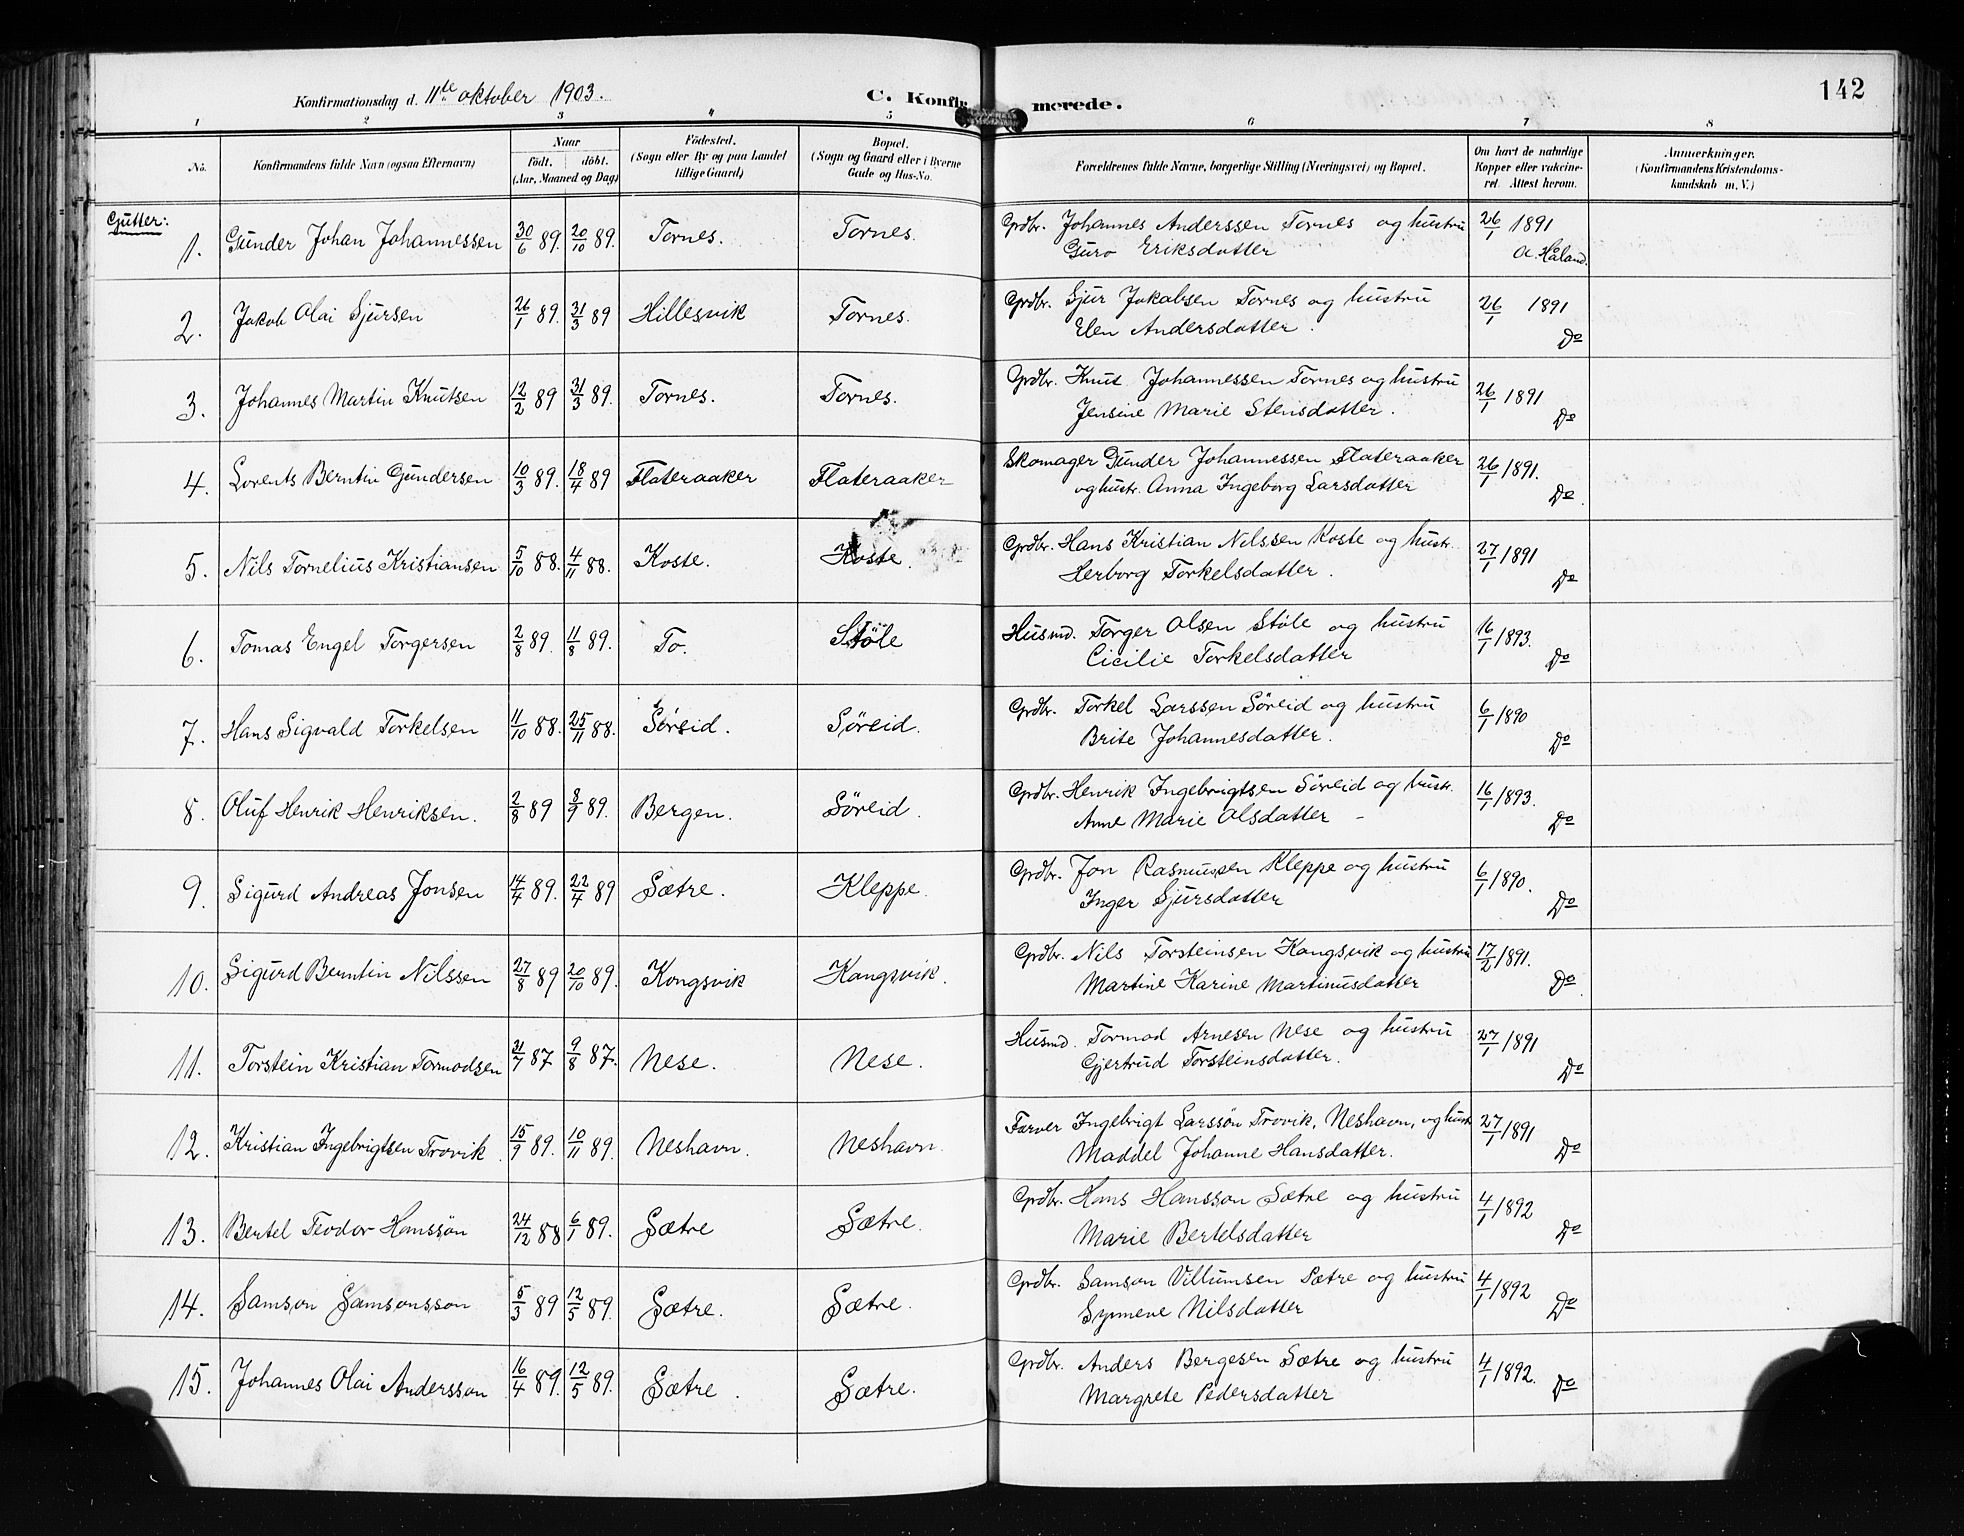 142
Konfirmationsdag d. 11te oktober 1903.
C. Konfirmerede.
1 2 3 4 5 6 7 8
No.
Konfirmandens fulde Navn (ogsaa Efternavn)
Naar
født. døbt.
(Aar, Maaned og Dag)
Fødested.
(Sogn eller By og paa Landet
tillige Gaard)
Bopæl.
(Sogn og Gaard eller i Byerne
Gade og Hus-No.
Forældrenes fulde Navne, borgerlige Stilling (Næringsvei) og Bopæl.
Om havt de naturlige
Kopper eller vakcine-
ret. Attest herom.
Anmærkninger.
(Konfirmandens Kristendoms-
kundskab m. V.)
Gutter:
1. Gunder Johan Johannessen 30/6 89. 20/10 89. Tornes. Tornes. Grdbr. Johannes Anderssen Tornes og hustru 26/1 1891
Guro Eriksdatter A. Håland.
2. Jakob Olai Sjursen 26/1 89. 31/3 89 Hillesvik Tornes. Grdbr. Sjur Jakobsen Tornes og hustru 26/1 1891
Elen Andersdatter. Do
3. Johannes Martin Knutsen 12/2 89 31/3 89. Tornes. Tornes. Grdbr. Knut Johannessen Tornes og hustru 26/1 1891
Jensine Marie Stensdatter. Do
4. Lorents Berntin Gundersen 10/3 89. 18/4 89 Flateraaker Flateraaker Skomager Gunder Johannessen Flateraaker 26/1 1891.
og hustr. Anna Ingeborg Larsdatter Do
5. Nils Tornelius Kristiansen 5/10 88. 4/11 88. Koste. Koste. Grdbr. Hans Kristian Nilssen Koste og hustr. 27/1 1891
Herborg Torkelsdatter. Do
6. Tomas Engel Torgersen 2/8 89. 11/8 89. To. Støle Husmd. Torger Olsen Støle og hustru 16/1 1893.
Cicilie Torkelsdatter Do
7. Hans Sigvald Torkelsen 11/10 88. 25/11 88. Søreid. Søreid. Grdbr. Torkel Larssen Søreid og hustru 6/1 1890
Brite Johannesdatter. Do
8. Oluf Henrik Henriksen. 2/8 89 8/9 89. Bergen. Søreid. Grdbr. Henrik Ingebrigtsen Søreid og hustr. 16/1 1893.
Anne Marie Olsdatter Do
9. Sigurd Andreas Jonsen 14/4 89. 22/4 89 Sætre. Kleppe. Grdbr. Jon Rasmussen Kleppe og hustru 6/1 1890.
Inger Sjursdatter Do
10. Sigurd Berntin Nilssen 27/8 89 20/10 89. Kongsvik Kangsvik. Grdbr. Nils Torsteinsen Kangsvik og hustru 17/2 1891.
Martine Karine Martinusdatter Do
11. Torstein Kristian Tormodsen 21/7 87 9/8 87. Nese. Nese. Husmd. Tormod Arnesen Nese og hustru 27/1 1891
Gjertrud Torsteinsdatter. Do
12. Kristian Ingebrigtsen Trovik. 15/9 89. 10/11 89. Neshavn. Neshavn. Farver Ingebrigt Larssøn Trovik, Neshavn, og hustr. 27/1 1891
Maddel Johanne Hansdatter. Do
13. Bertel Teodor Hanssøn 24/12 88 6/1 89. Sætre Sætre. Grdbr. Hans Hansson Sætre og hustru 4/1 1892
Marie Bertelsdatter Do
14. Samson Samsonsson 5/3 89 12/5 89. Sætre. Sætre. Grdbr. Samson Villumsen Sætre og hustru 4/1 1892
Synneve Nilsdatter Do
15. Johannes Olai Andersson 16/4 89. 12/5 89. Sætre. Sætre. Grdbr. Anders Bergesen Sætre og hustru 4/1 1892.
Margrete Pedersdatter Do